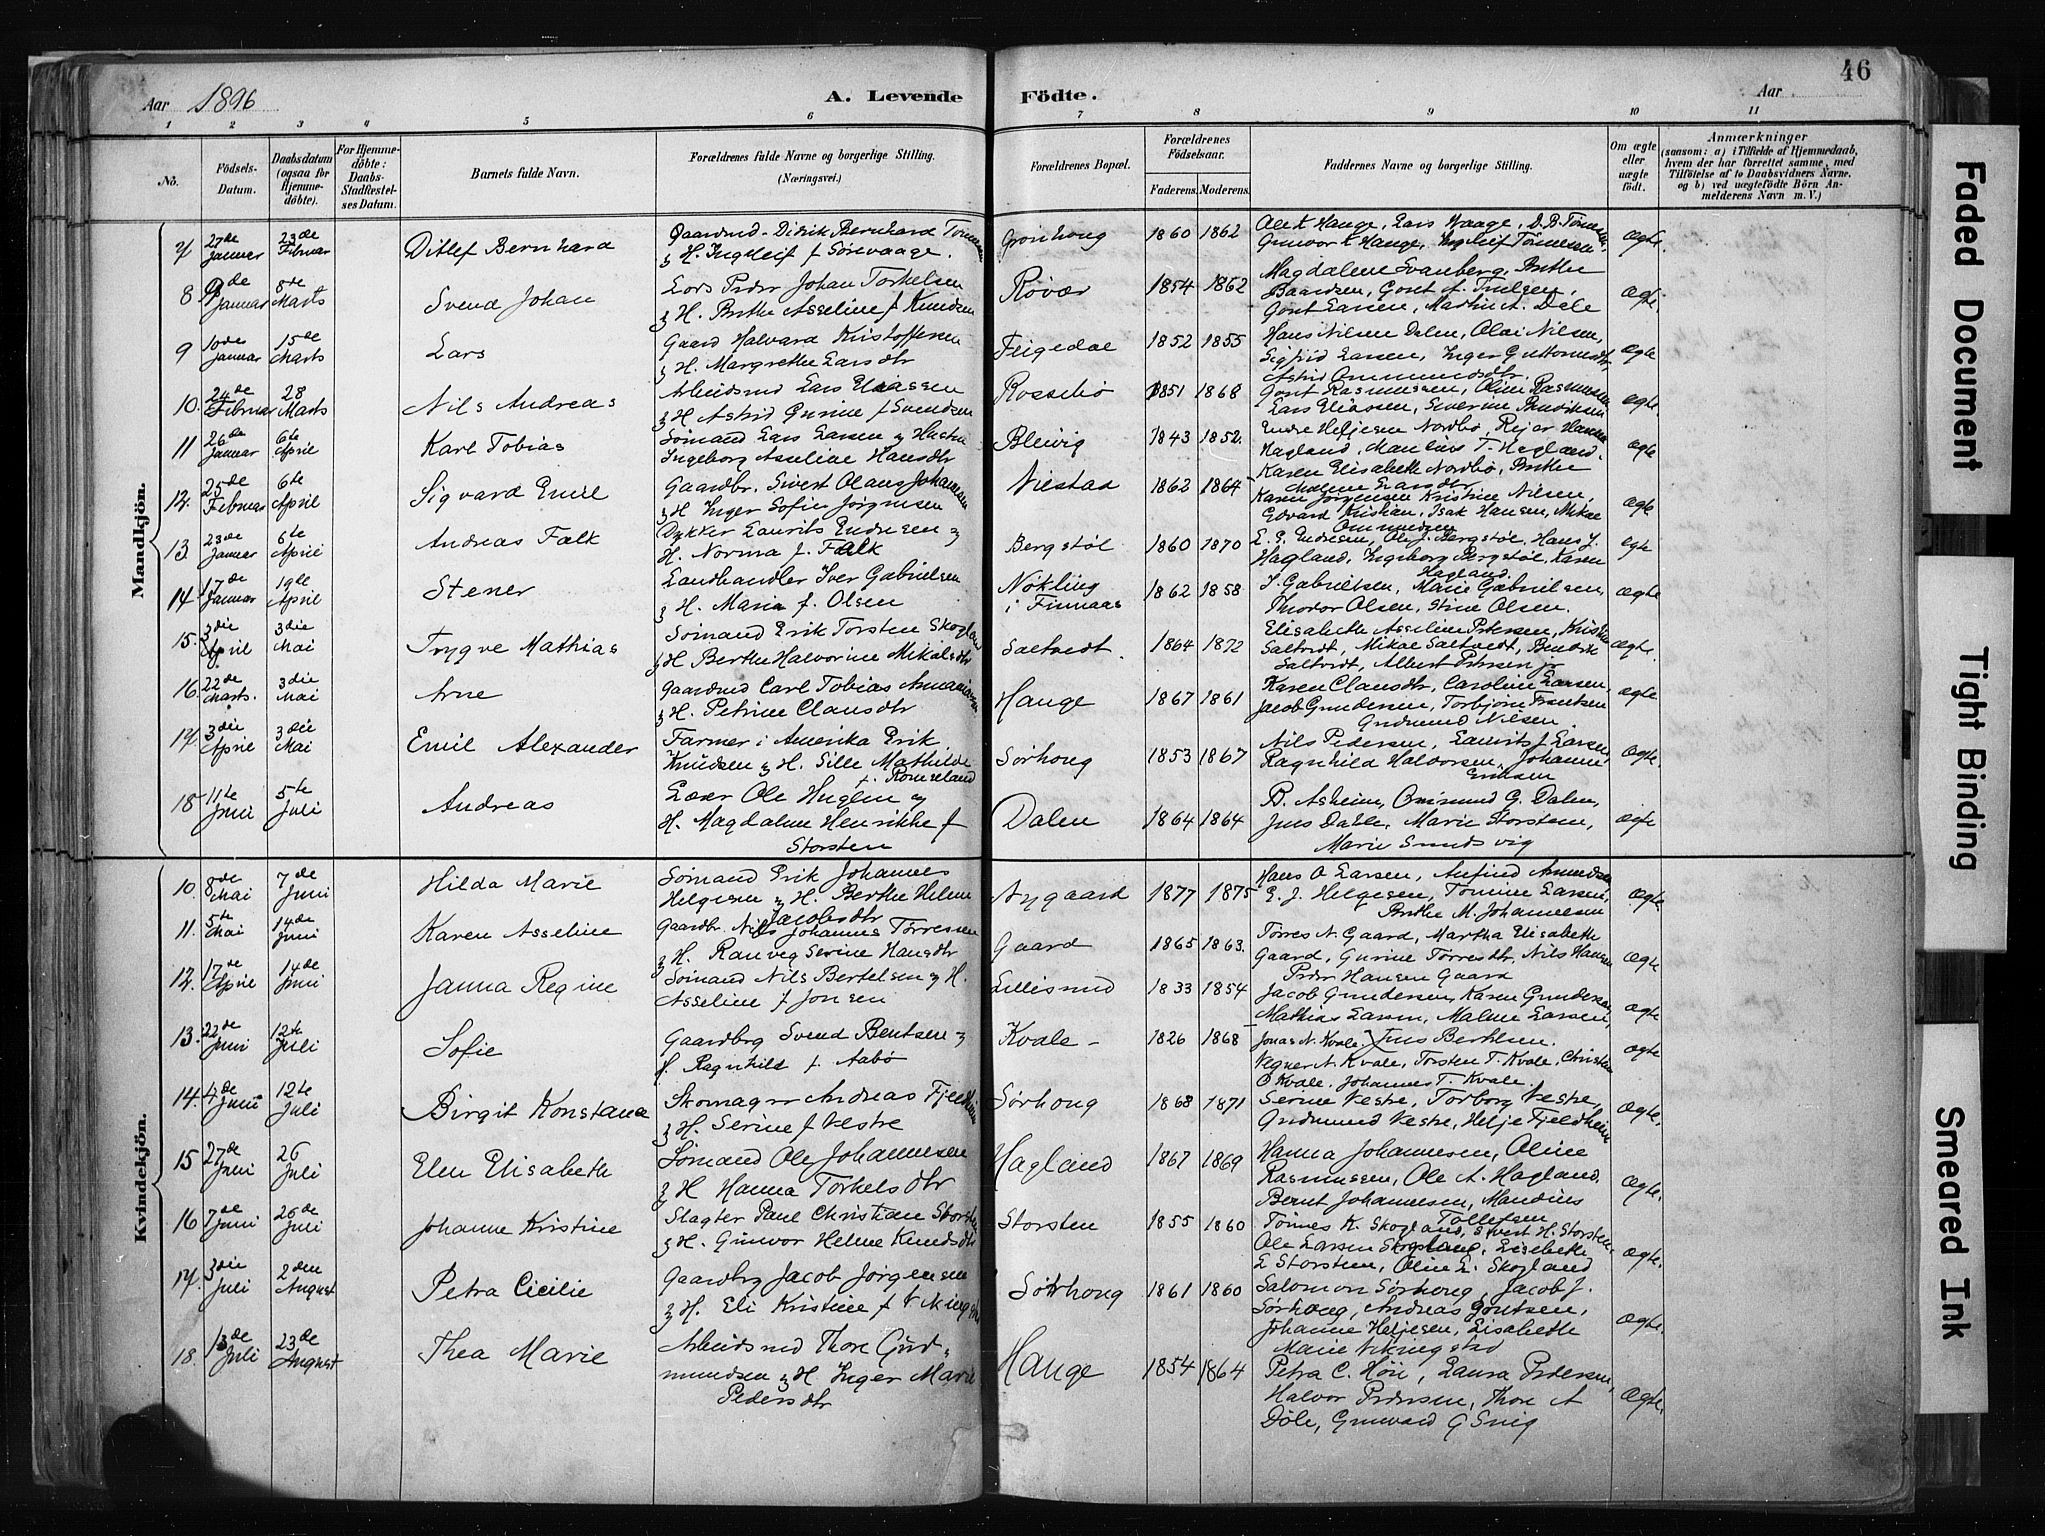 46
Aar 1896 A. Levende Födte. Aar
1 2 3 4 5 6 7 8 9 10 11
No. Födsels-Datum. Daabsdatum (ogsaa for Hjemme-döbte). For Hjemme-döbte: Daabs-Stadfæstel-ses Datum. Barnets fulde Navn. Forældrenes fulde Navne og borgerlige Stilling. (Næringsvei.) Forældrenes Bopæl. Forældrenes Födselsaar. Faderens. Moderens. Faddernes Navne og borgerlige Stilling. Om ægte eller uægte födt. Anmærkninger (saasom: a) i Tilfælde af Hjemmedaab, hvem der har forrettet samme, med Tilföielse af to Daabsvidners Navne, og b) ved uægtefödte Börn An-melderens Navn m. V.)
Mandkjön.
7 27de Januar 23de Februar Ditlef Bernhard Gaardmd. Didrik Bernhard Tönnesen
& H. Ingeleif f Sörevaage. Grönhoug 1860 1862 Lars Waage, D. B. Tönnesen, Gunvor Hauge, Ingeleif Tönnesen ægte.
8 9de Januar 8de Marts Svend Johan Lars Peder Johan Torkelsen
& H. Berthe Asseline f Knudsen Rövær 1854 1862 Magdalene Svanberg, Berthe
Baardsen, Gunt Larsen, Martin A. Dale ægte.
9 10de Januar 15de Marts Lars Gaard Halvard Kristoffersen
& H. Margrethe Larsdtr Feigedal 1852 1855 Hans Nilsen Dalen, Olai Nilsen,
Sigfrid Larsen, Inger Guttormsdtr,
Astrid Ommundsdtr. ægte
10. 24de Februar 28 Marts Nils Andreas Arbeidsmd Lars Eliassen
& H Astrid Gurine f Svendsen Rossebö 1851 1868 Gunt Rasmussen, Oline Rasmussen
Lars Eliassen, Severine Bendiksen ægte.
11 26de Januar 6te April Karl Tobias Sömand Lars Larsen & Hustru
Ingeborg Asseline Hansdtr Bleivig 1843 1852. Endre Helgesen Nordbö, Rejer Hansen
Hagland, Mandius T. Hagland,
Karen Elisabeth Nordbö, Berthe
Malene Larsdtr ægte
12. 25de Februar 6te April Sigvard Emil Gaardbr. Sivert Olaus Johannesen
& H Inger Sofie Jörgensen Nilstad 1862 1864 Karen Jörgensen Kristine Nilsen,
Edvard Kristian, Isak Hansen, Mikal
Ommundsen ægte
13 23de Januar 6te April Andreas Falk Dykker Laurits Endresen &
H. Norma f. Falk Bergstöl 1860 1870 E. E. Endresen, Ole J. Bergstöl, Hans J.
Hagland, Ingeborg Bergstöl, Karen
Hagland. egte
14 17de Januar 19de April Stener Landhandler Iver Gabrielsen
& H. Maria f. Olsen Nökling
i Finnaas 1862 1858 I. Gabrielsen, Marie Gabrielsen,
Thodor Olsen, Stine Olsen. ægte
15. 3die April 3die Mai Trygve Mathias Sömand Erik Torsten Skogland
& H Berthe Halvorine Mikalsdtr Saltvedt. 1864 1872 Elisabeth Asseline Petersen, Kristen
Saltvedt, Mikal Saltvedt, Bendik
Saltvedt, Albert Petersen jr ægte.
16. 22de Marts. 3die Mai Arne Gaardmd Carl Tobias Amaniasen
& H. Petrine Clausdtr Hauge 1867 1861 Karen Clausdtr, Caroline Larsen,
Jacob Gundersen, Torbjörn Frantzen
Gudmund Nilsen. ægte
17. 3die April 3die Mai Emil Alexander Farmer i Amerika Erik
Knudsen & H. Sille Mathilde
f. Romseland Sörhoug 1853 1867 Nils Pedersen, Laurits J. Larsen,
Ragnhild Halvorsen, Johanne
Eriksen ægte
18 11te Juni 5te Juli Andreas Lærer Ole Huglen &
H. Magdalene Henrikke f
Storsten Dalen 1864 1864 B. Asheim, Omund G. Dalen,
Jens Dahle, Marie Storsten,
Marie Sundsvig ægte
Kvindekjön.
10. 8de Mai 7de Juni Hilda Marie Sömand Erik Johannes
Helgesen & H. Berthe Helene
Jacobsdtr Nygaard 1877 1875 Hans O Larsen, Anfind Amundsen
E. J. Helgesen, Tomine Larsen,
Berthe M. Johannesen ægte.
11. 5te Mai 14de Juni Karen Asseline Gaardbr. Nils Johannes Törresen
& H. Ranveg Serine Hansdtr Gaard 1865 1863. Törres N. Gaard, Martha Elisabeth
Gaard, Gurine Törresdtr, Nils Hansen
Peder Hansen Gaard ægte
12. 17de April 14de Juni Janna Regine Sömand Nils Bertelsen & H.
Asseline f Jonsen Lillesund 1833 1854 Jacob Gundersen, Karen Gundersen
Mathias Larsen, Malene Larsen, ægte
13. 22de Juni 12te Juli Sofie Gaardbrg Svend Bentsen &
H. Ragnhild f. Aabö Kvale - 1826 1868 Jonas N. Kvale, Jens Berthsen.
Vegner A. Kvale, Torsten T. Kvale, Christen
O Kvale, Johannes T. Kvale. ægte
14. 4de Juni 12te Juli Birgit Konstana Skomager Andreas Fjeldheim
& H. Serine f Vestre Sörhoug 1868 1871 Serine Vestre, Torborg Vestre,
Gudmund Vestre, Helje Fjeldheim ægte.
15 27de Juni 26 Juli Elen Elisabeth Sömand Ole Johannesen
& H Hanna Torkelsdtr Hagland 1867 1869 Hanna Johannesen, Oline
Rasmussen, Ole A. Hagland,
Bernt Johannesen, Mandius
Tollefsen ægte.
16 7de Juni 26de Juli Johanne Kristine Slagter Paul Christian Storsten
& H. Gunvor Helene Knudsdtr Storsten 1855 1860 Tönnes K. Skogland, Sivert H. Storsten,
Ole Larsen Skogland, Lisebeth
L Storsten, Oline L. Skogland ægte.
17. 3die Juli 2den August Petra Cicilie Gaardbrg Jacob Jörgensen
& H. Eli Kristine f Vikingstad Sörhoug 1861 1860 Salomon Sörhoug, Jacob J.
Sörhoug, Andreas Gautsen,
Johanne Heljesen, Lisabeth
Marie Vikingstad ægte.
18. 13de Juli 23de August Thea Marie Arbeidsmd Thore Gud-
mundsen & H Inger Marie
Pedersdtr Hauge 1854 1864 Petra C. Höie, Laura Pedersen,
Halvor Pedersen, Thore A
Döle, Gunvald G Sveg ægte.
Faded Document
Tight Binding
Smeared Ink